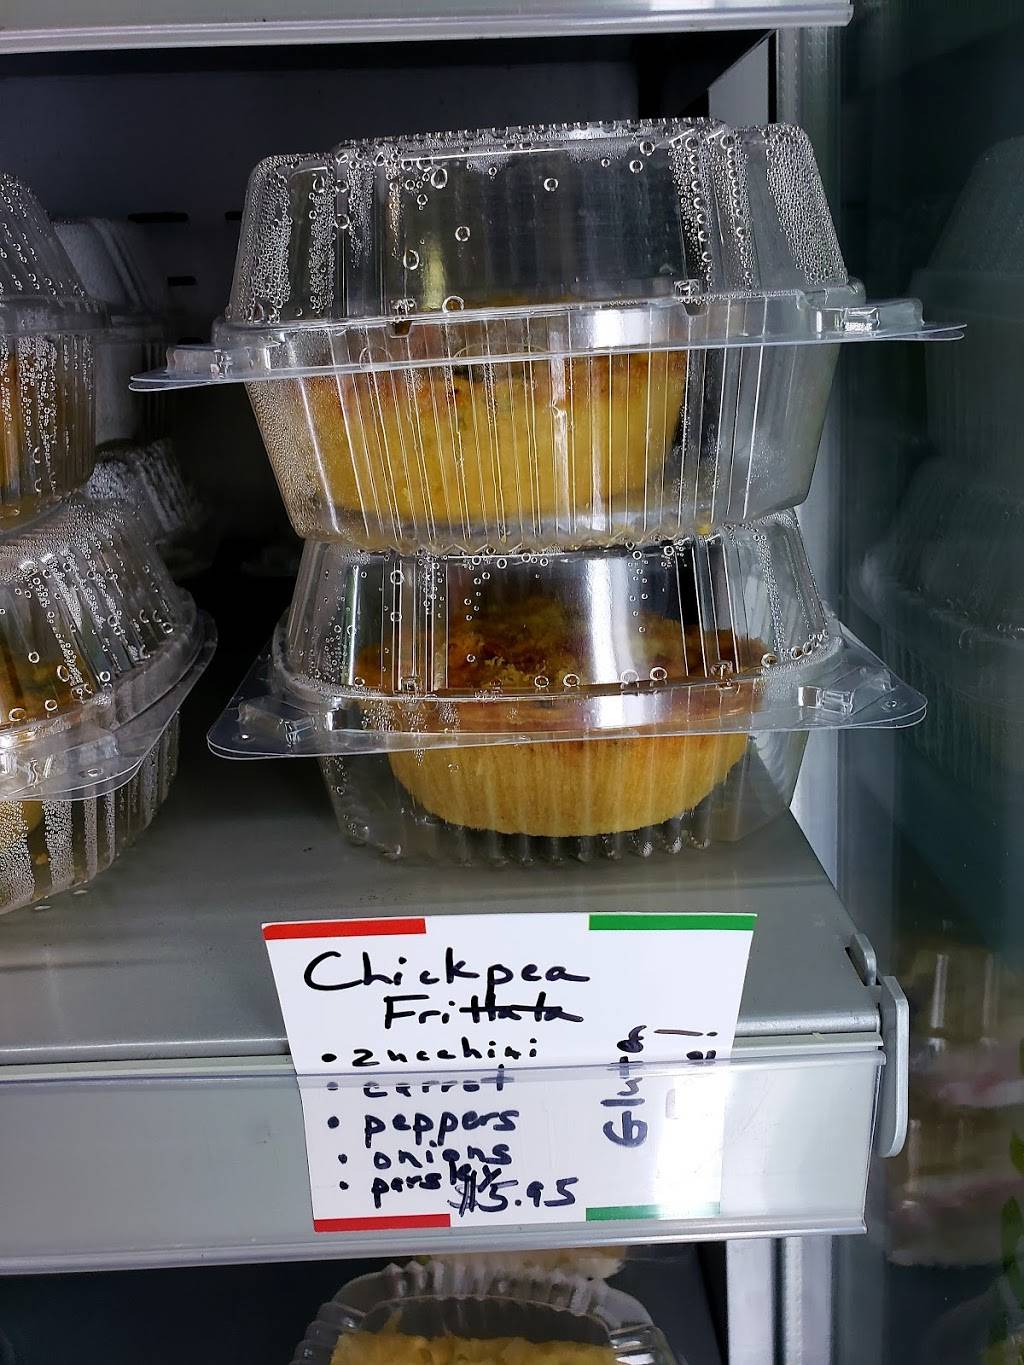 Chickpea
Frittata
• zucchini
• carrot
• peppers
• onions
• parsley
$5.95
Gluten